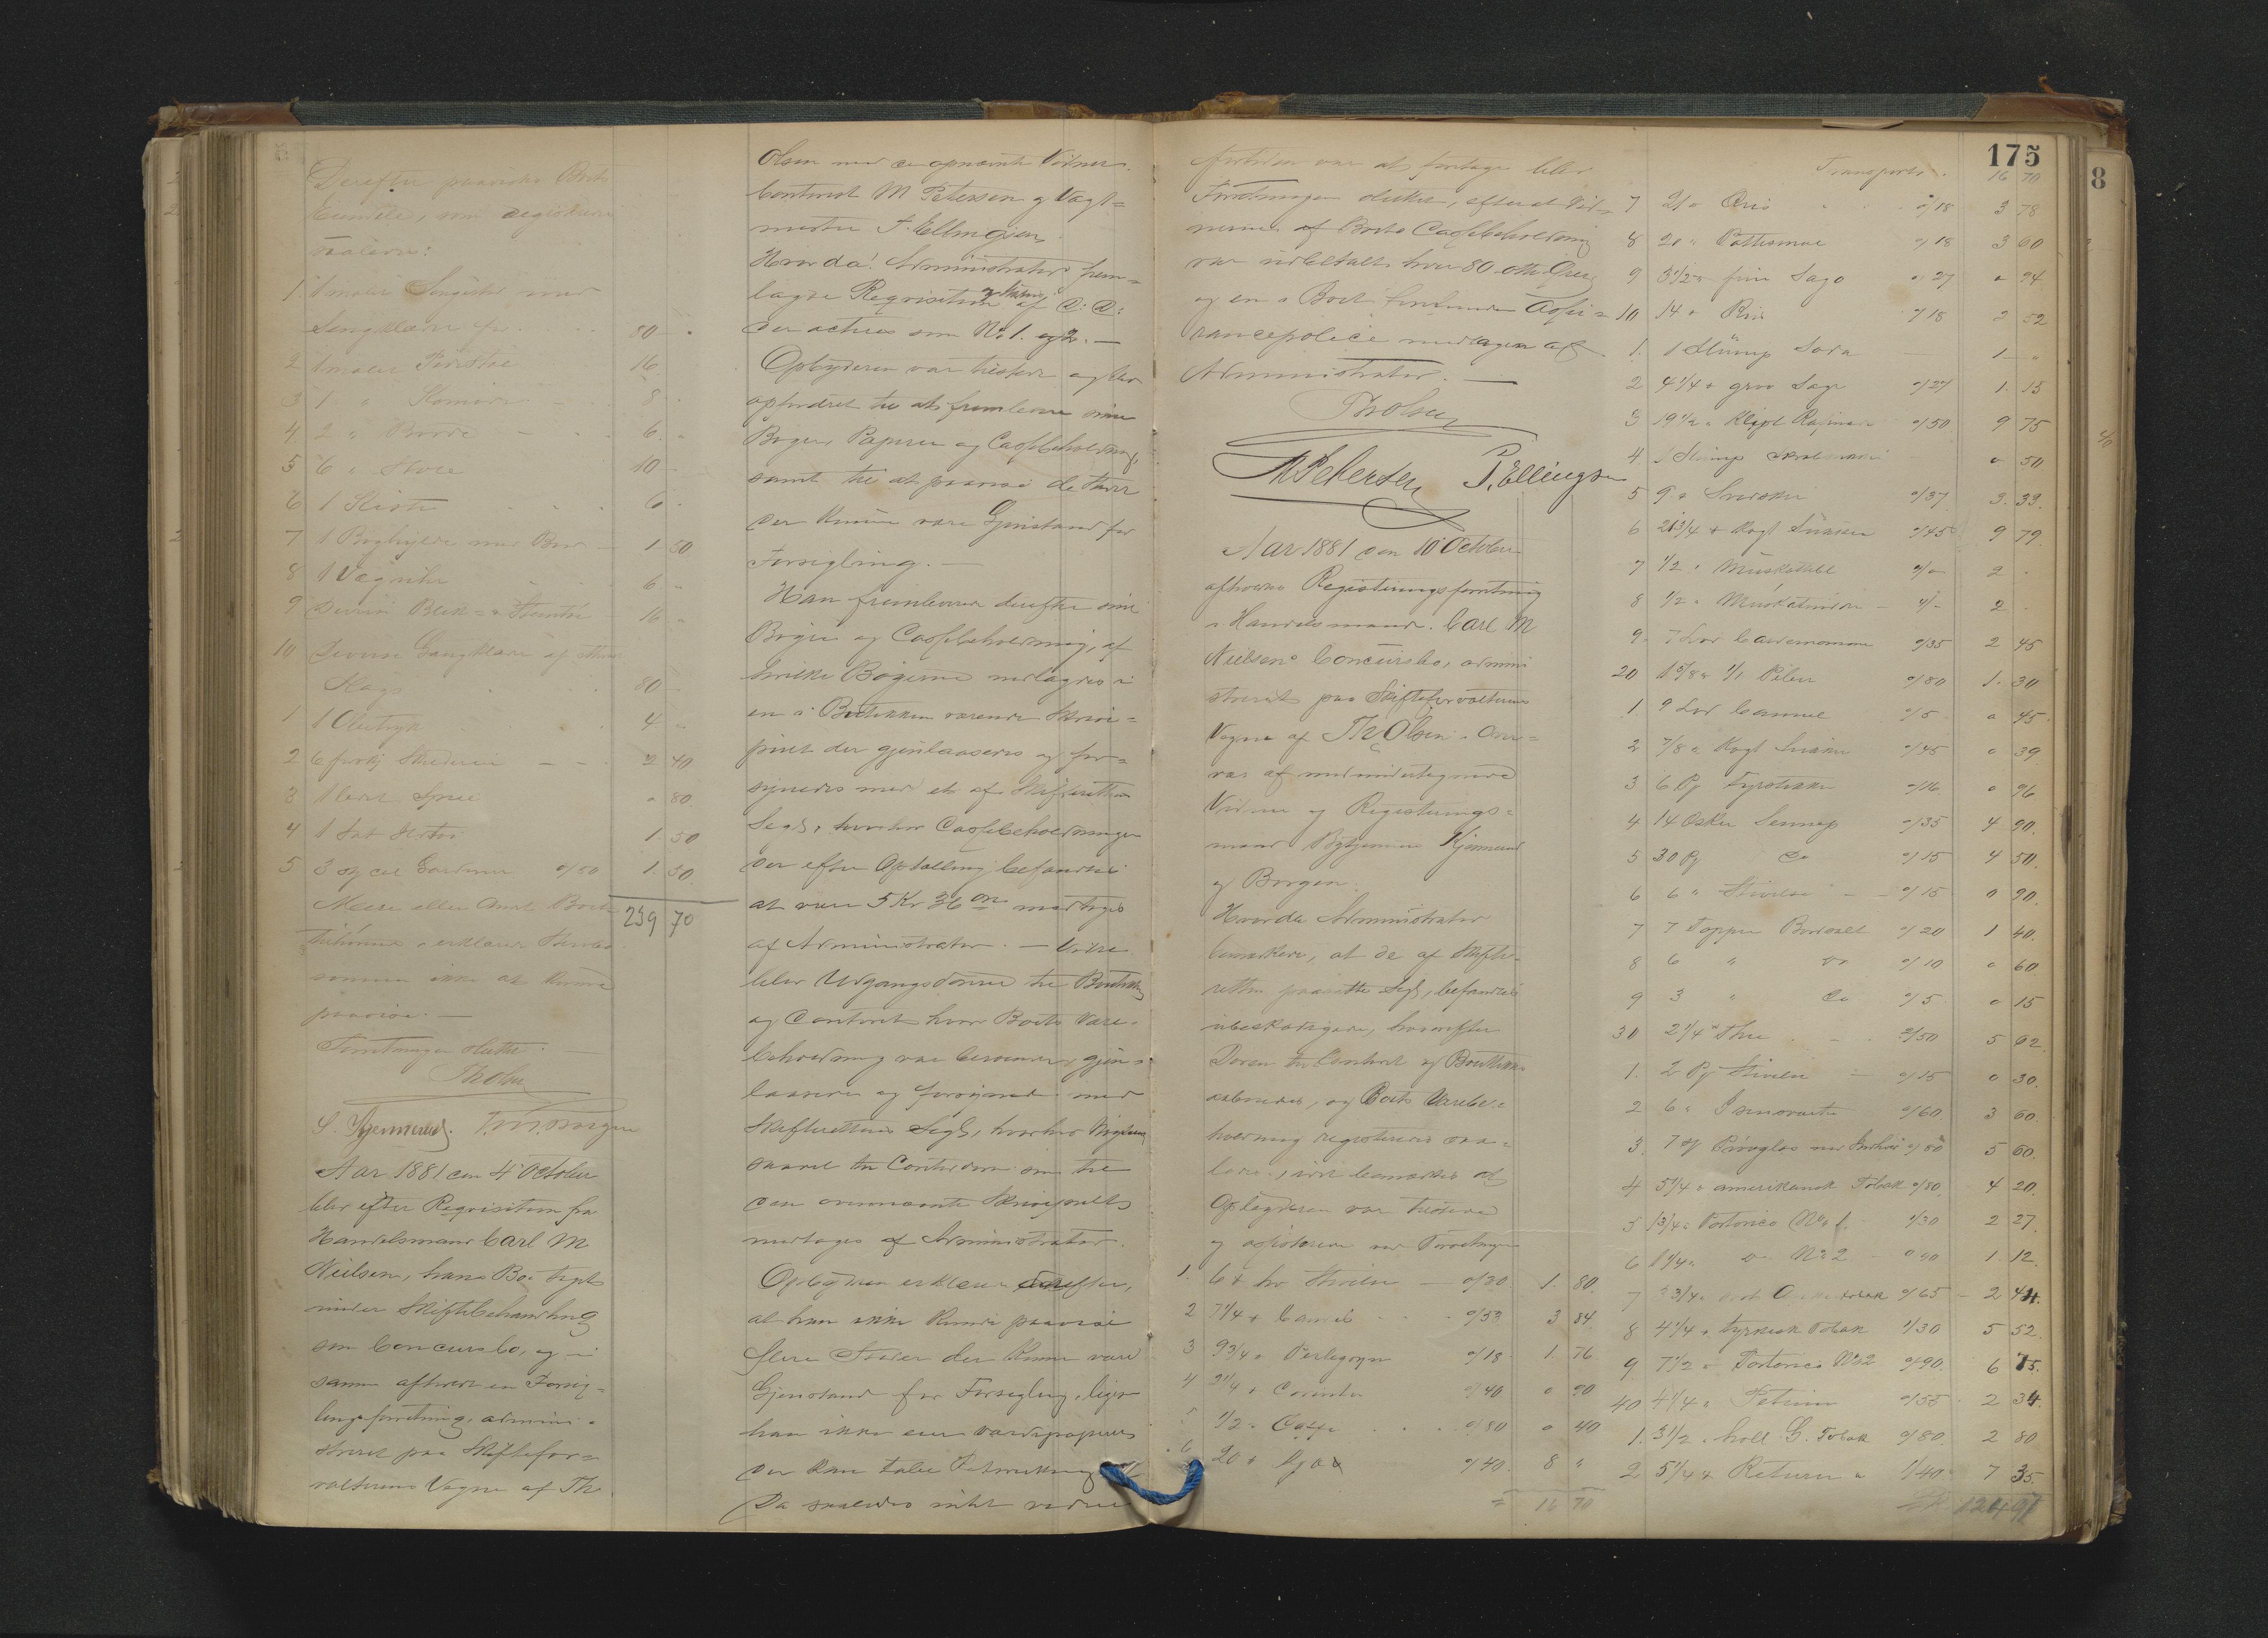 Derefter paaviste Boets
Eiendele, som registreredes
saaledes:
1. 1 malet Sengested med
Sengklæder for . . . 80 -
2 1 malet 16
3 1 " Komode - 8 -
4 2 " Borde - 6 "
5 6 " Stole 10 -
6 1 Kiste 6 -
7 1 Boghylde med 1 50
8 1 Væguhr 6 "
9 Diverse Blik- & Stentøi 16 "
10 Diverse Gangklæder af
Slags 80 -
1 1 Olietryk 4 -
2 6 forskj Skilderier - - 2 40
3 1 Speil " 80
4 1 Sat 1. 50
5 3 Gardiner a/50 1. 50
Mere eller Andet Boet
239 70
tilhørende erklærede
sammen ikke at kunne
paavise. —
Forretningen sluttet. —
Th Olsen
S. Kjennerud. T. M. Borgen
Aar 1881 den 4 October
blev efter Requisition fra
Handelsmand Carl M
Nielsen, hans Bo taget
under Skiftebehandling
som Concursbo, og i
samme afholdt en Forseg-
lingsforretning, admini-
streret paa Skiftefor-
valterens Vegne af Th.
Olsen med de opnævnte Vidner
Contorist M Petersen og Vagt-
mester P. Ellingsen
Hvorda! Administrator frem-
lagde Requisition af D: D:
der acteres som No 1. og 2. —
Opbyderen var tilstede og blev
opfordret til at fremlevere sine
Bøger Papirer og Cassebeholdning,
samt til at paavise de Steder
der kunne være Gjenstand for
Forsegling. —
Han fremleverede derefter sine
Bøger og Cassebeholdning, af
hvilke Bøgerne nedlagdes i
en i Boutikken værende Skrive-
pult der gjenlaasedes og for-
synedes med et af Skifterettens
Segl, hvorhos Cassebeholdningen
der efter Optælling befandtes
at være 5 Kr 36 øre modtoges
af Administrator. —
blev Udgangsdørene til Boutikken
og Contoret hvor Boets Vare-
beholdning var beroende, gjen-
laasede og forsynede med
Skifterettens Segl, hvorhos Nøglerne
saavel til Contordøren som til
den ommeldte Skrivepult
modtoges af Administrator.
Opbyderen erklærede derefter,
at han ikke kunde paavise
flere Steder der kunne være
Gjenstand for Forsegling, ligesom
han ikke eier Værdipapirer
der kan taale
Da saaledes intet videre
for var at foretage blev
Forretningen sluttet, efterat Vid-
nerne af Boets Cassebeholdning
var udbetalt hver 80 otti Øre
og en i Boet Assu-
rancepolice modtagen af
Administrator. —
Th Olsen
M Petersen P. Ellingsen
Aar 1881 den 10 October
afholdtes Registreringsforretning
i Handelsmand Carl M
Nielsens Concursbo, admini
streret paa Skifteforvalterens
Vegne af Th Olsen i Over-
vær af medundertegnede
Vidner og Registrerings-
mænd Bytjenerne Kjennerud
og Borgen.
Hvorda Administrator
bemærkede, at de af Skifte-
retten paasatte Segl, befandtes
ubeskadigede, hvorefter
Døren til Contoret og Boutikken
aabnedes, og Boets Varebe-
holdning registreredes saa-
ledes, idet bemærkes at
Opbyderen var tilstede
og assisterede ved Forretningen
1. 6 " Stivelse - a/30. 1. 80.
2 7 1/4 " a/53 3 84.
3 9 3/4 " Perlegryn a/18 1. 76
4 2 1/4 " Corender a/40 " 90
5 1/2 " Caffe . . . a/80 " 40
6 20 " a/40. 8 "
= 16 70
175
Transport. 16 70
7 21 " a/18 3 78
8 20 " a/18 3 60
9 3 1/2 " fin Sago a/27 " 94
10 14 " Ris a/18 2 52
1. 1 Slump Soda 1 "
2 4 1/4 " grov Sago a/27 1. 15
3 19 1/2 " Klippet Rafinade a/50 9 75
4. 1 Slump " 50
5 9 " Svedsker a/37 3. 33.
6 21 3/4 " Kogt a/45 9 79.
7 1/2 " Muskatblle 2 -
8 1/2 " Muskatnødder - 2 -
9. 7 Lod Cardemomme a/35 2 45
20 1 5/8 " a/80 1. 30
1. 9 Lod Cannel a/5 " 45.
2 7/8 " Kogt a/45 " 39
3 6 Pk Fyrstikker a/16 " 96
4 14 Æsker Sennep a/35 4 90.
5 30 Pk Do a/15 4 50.
6 6 " Stivelse - - a/15 " 90.
7 7 Topper Bordsalt a/20 1 40.
8 6 " Do a/10 " 60
9 3 " Do a/5 " 15
30 2 1/4 " Thee . . 2/50 5 62.
1. 2 Pk Stivelse - a/15 " 30.
2 6 " a/60. 3 60.
3. 7 Prøveglas med a/80 5 60.
4 5 1/4 " amerikansk Tobak a/80. 4 20.
5 1 3/4 " Portorico No 1. 1/30 2 27.
6 1 1/4 " Do No 2 a 90 1. 12.
7 3 3/4 " Tobak a/65 - 2 44.
8 4 1/4 " tyrkisk Tobak 1/30 5 52.
9 7 1/2 " Portorico No 2 a/90. 6 75.
40 4 1/4 " a/55 2 34.
1. 3 1/2 " holl G. Tobak a/80. 2 80
2 5 1/4 " Return " 1/40 7 35
124 97
8